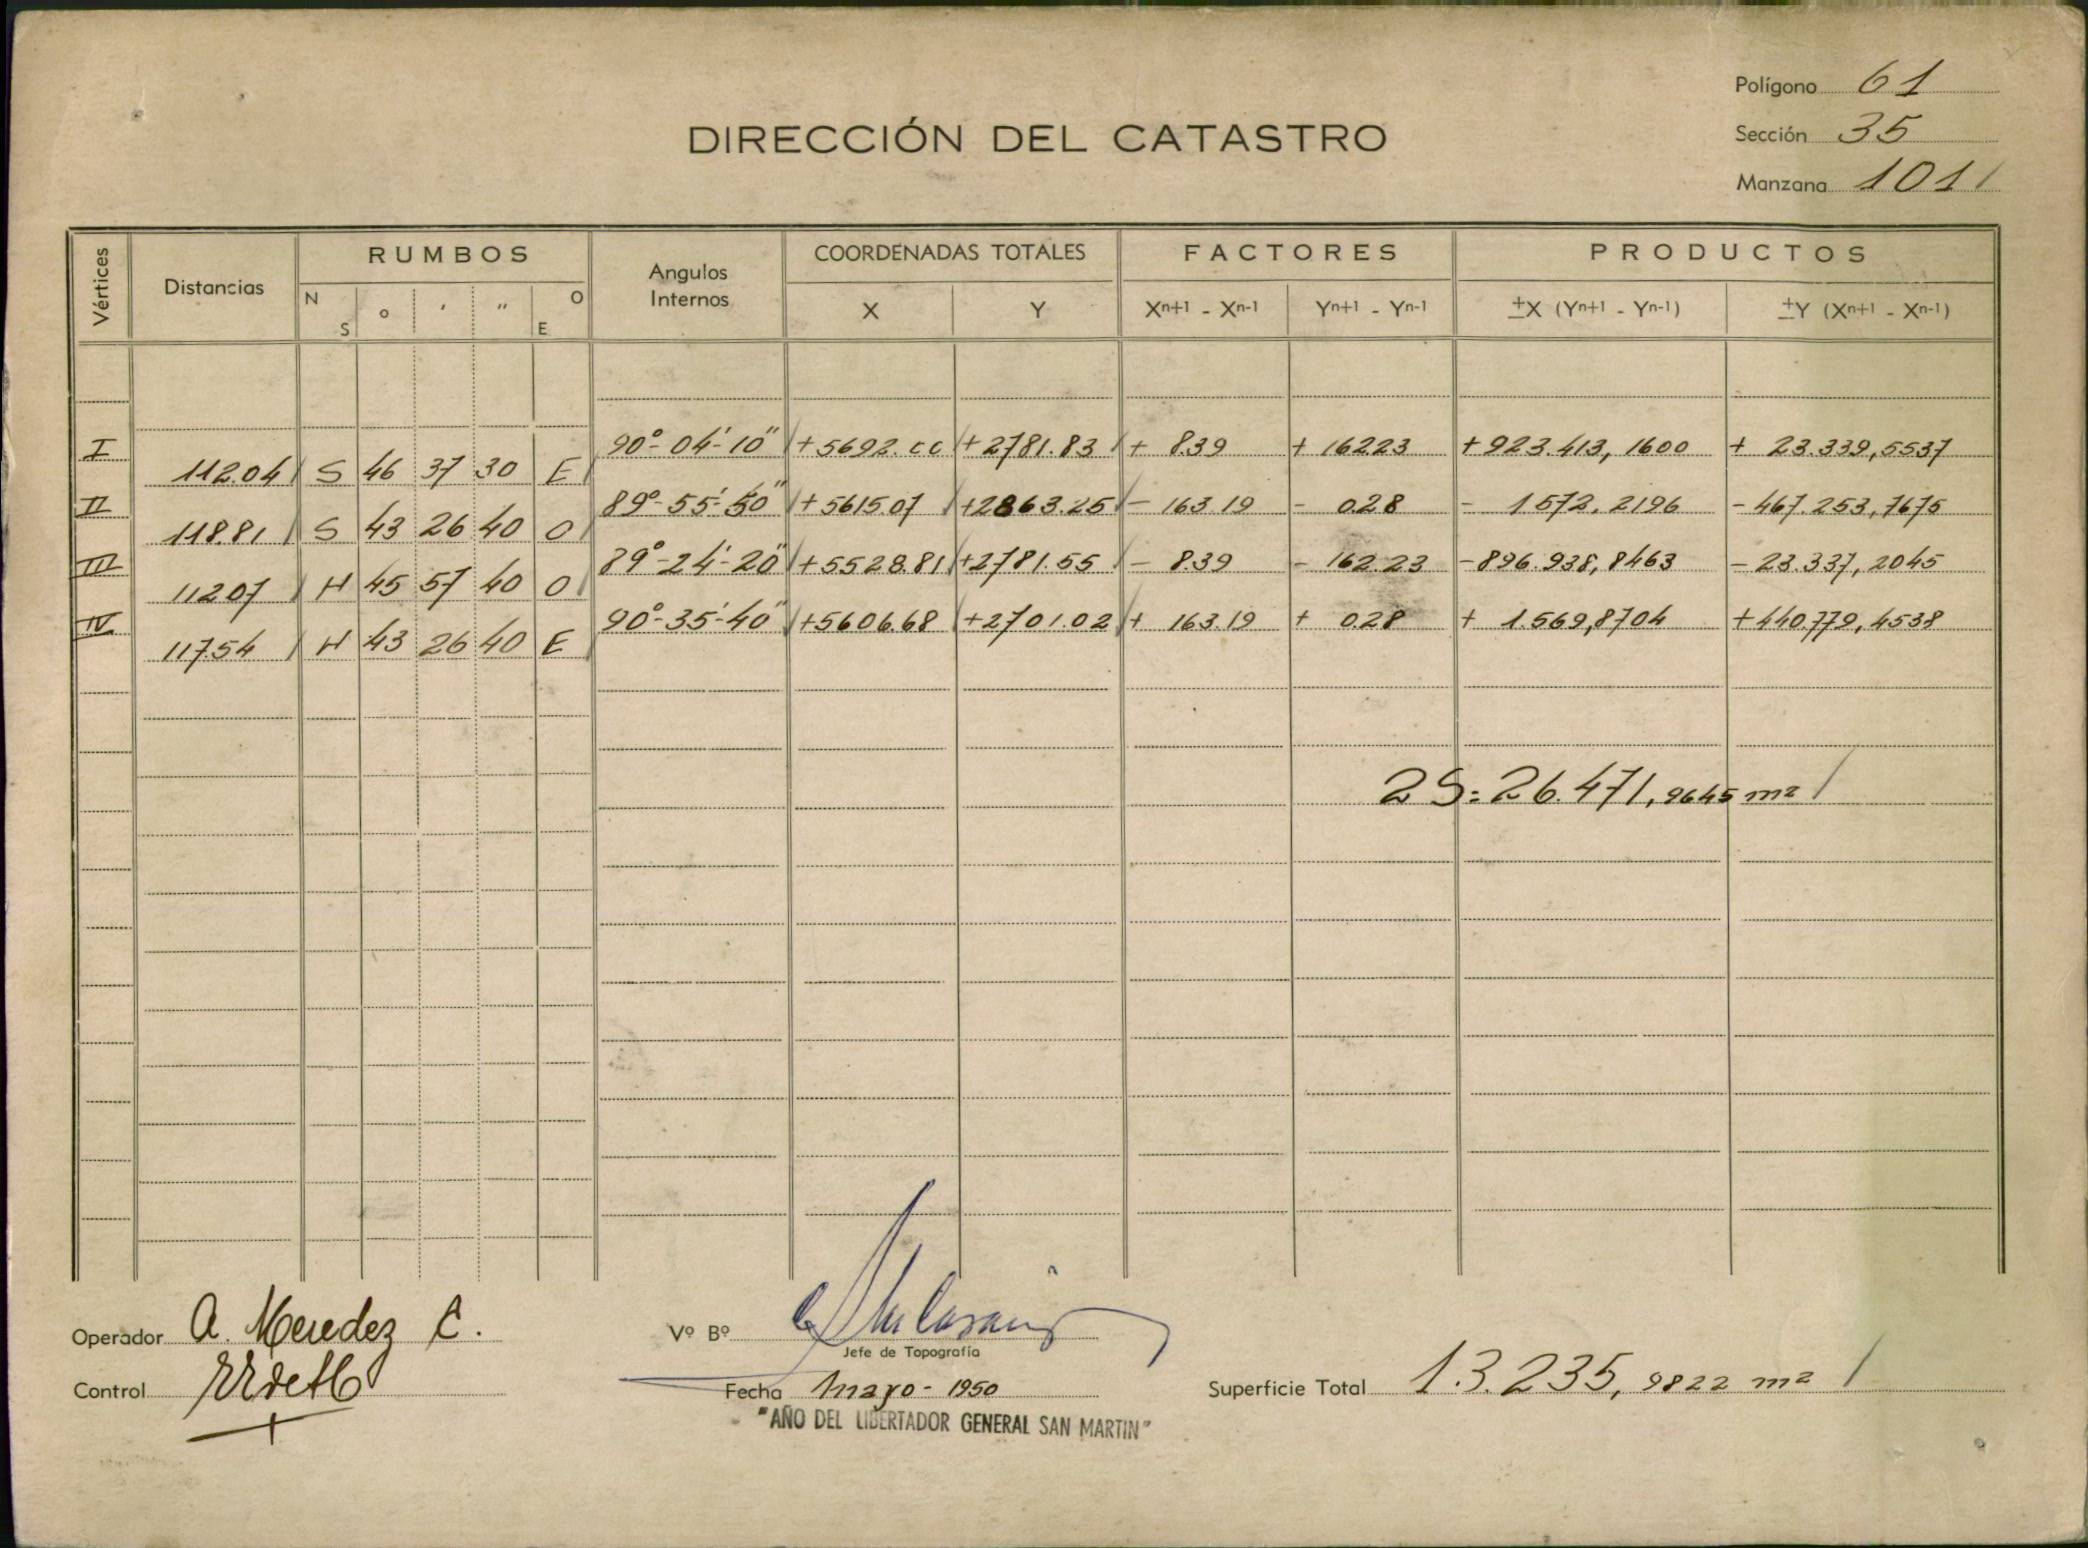 Polígono 61
DIRECCIÓN DEL CATASTRO
Sección 35
Manzana 101
Vértices Distancias RUMBOS Angulos Internos COORDENADAS TOTALES FACTORES PRODUCTOS
N S o ' " O E X Y Xn+1 - Xn-1 Yn+1 - Yn-1 ±X (Yn+1 - Yn-1) ±Y (Xn+1 - Xn-1)
I 90°-04'-10" +5692.00 +2781.83 + 8.39 + 162.23 +923.413,1600 + 23.339,5537
112.04 S 46 37 30 E
II 89°-55'-50" +5615.07 +2863.25 - 163.19 - 0.28 - 1572,2196 -467.253,7675
118.81 S 43 26 40 O
III 89°-24'-20" +5528.81 +2781.55 - 8.39 - 162.23 -896.938,8463 -23.337,2045
112.07 N 45 57 40 O
IV 90°-35'-40" +5606.68 +2701.02 + 163.19 + 0.28 + 1.569,8704 +440.779,4538
117.54 N 43 26 40 E
2S=26.471,9645 m2
Operador A. Mendez C.
Vº Bº
Jefe de Topografía
Control
Fecha mayo - 1950
Superficie Total 13.235,9822 m2
"AÑO DEL LIBERTADOR GENERAL SAN MARTIN"